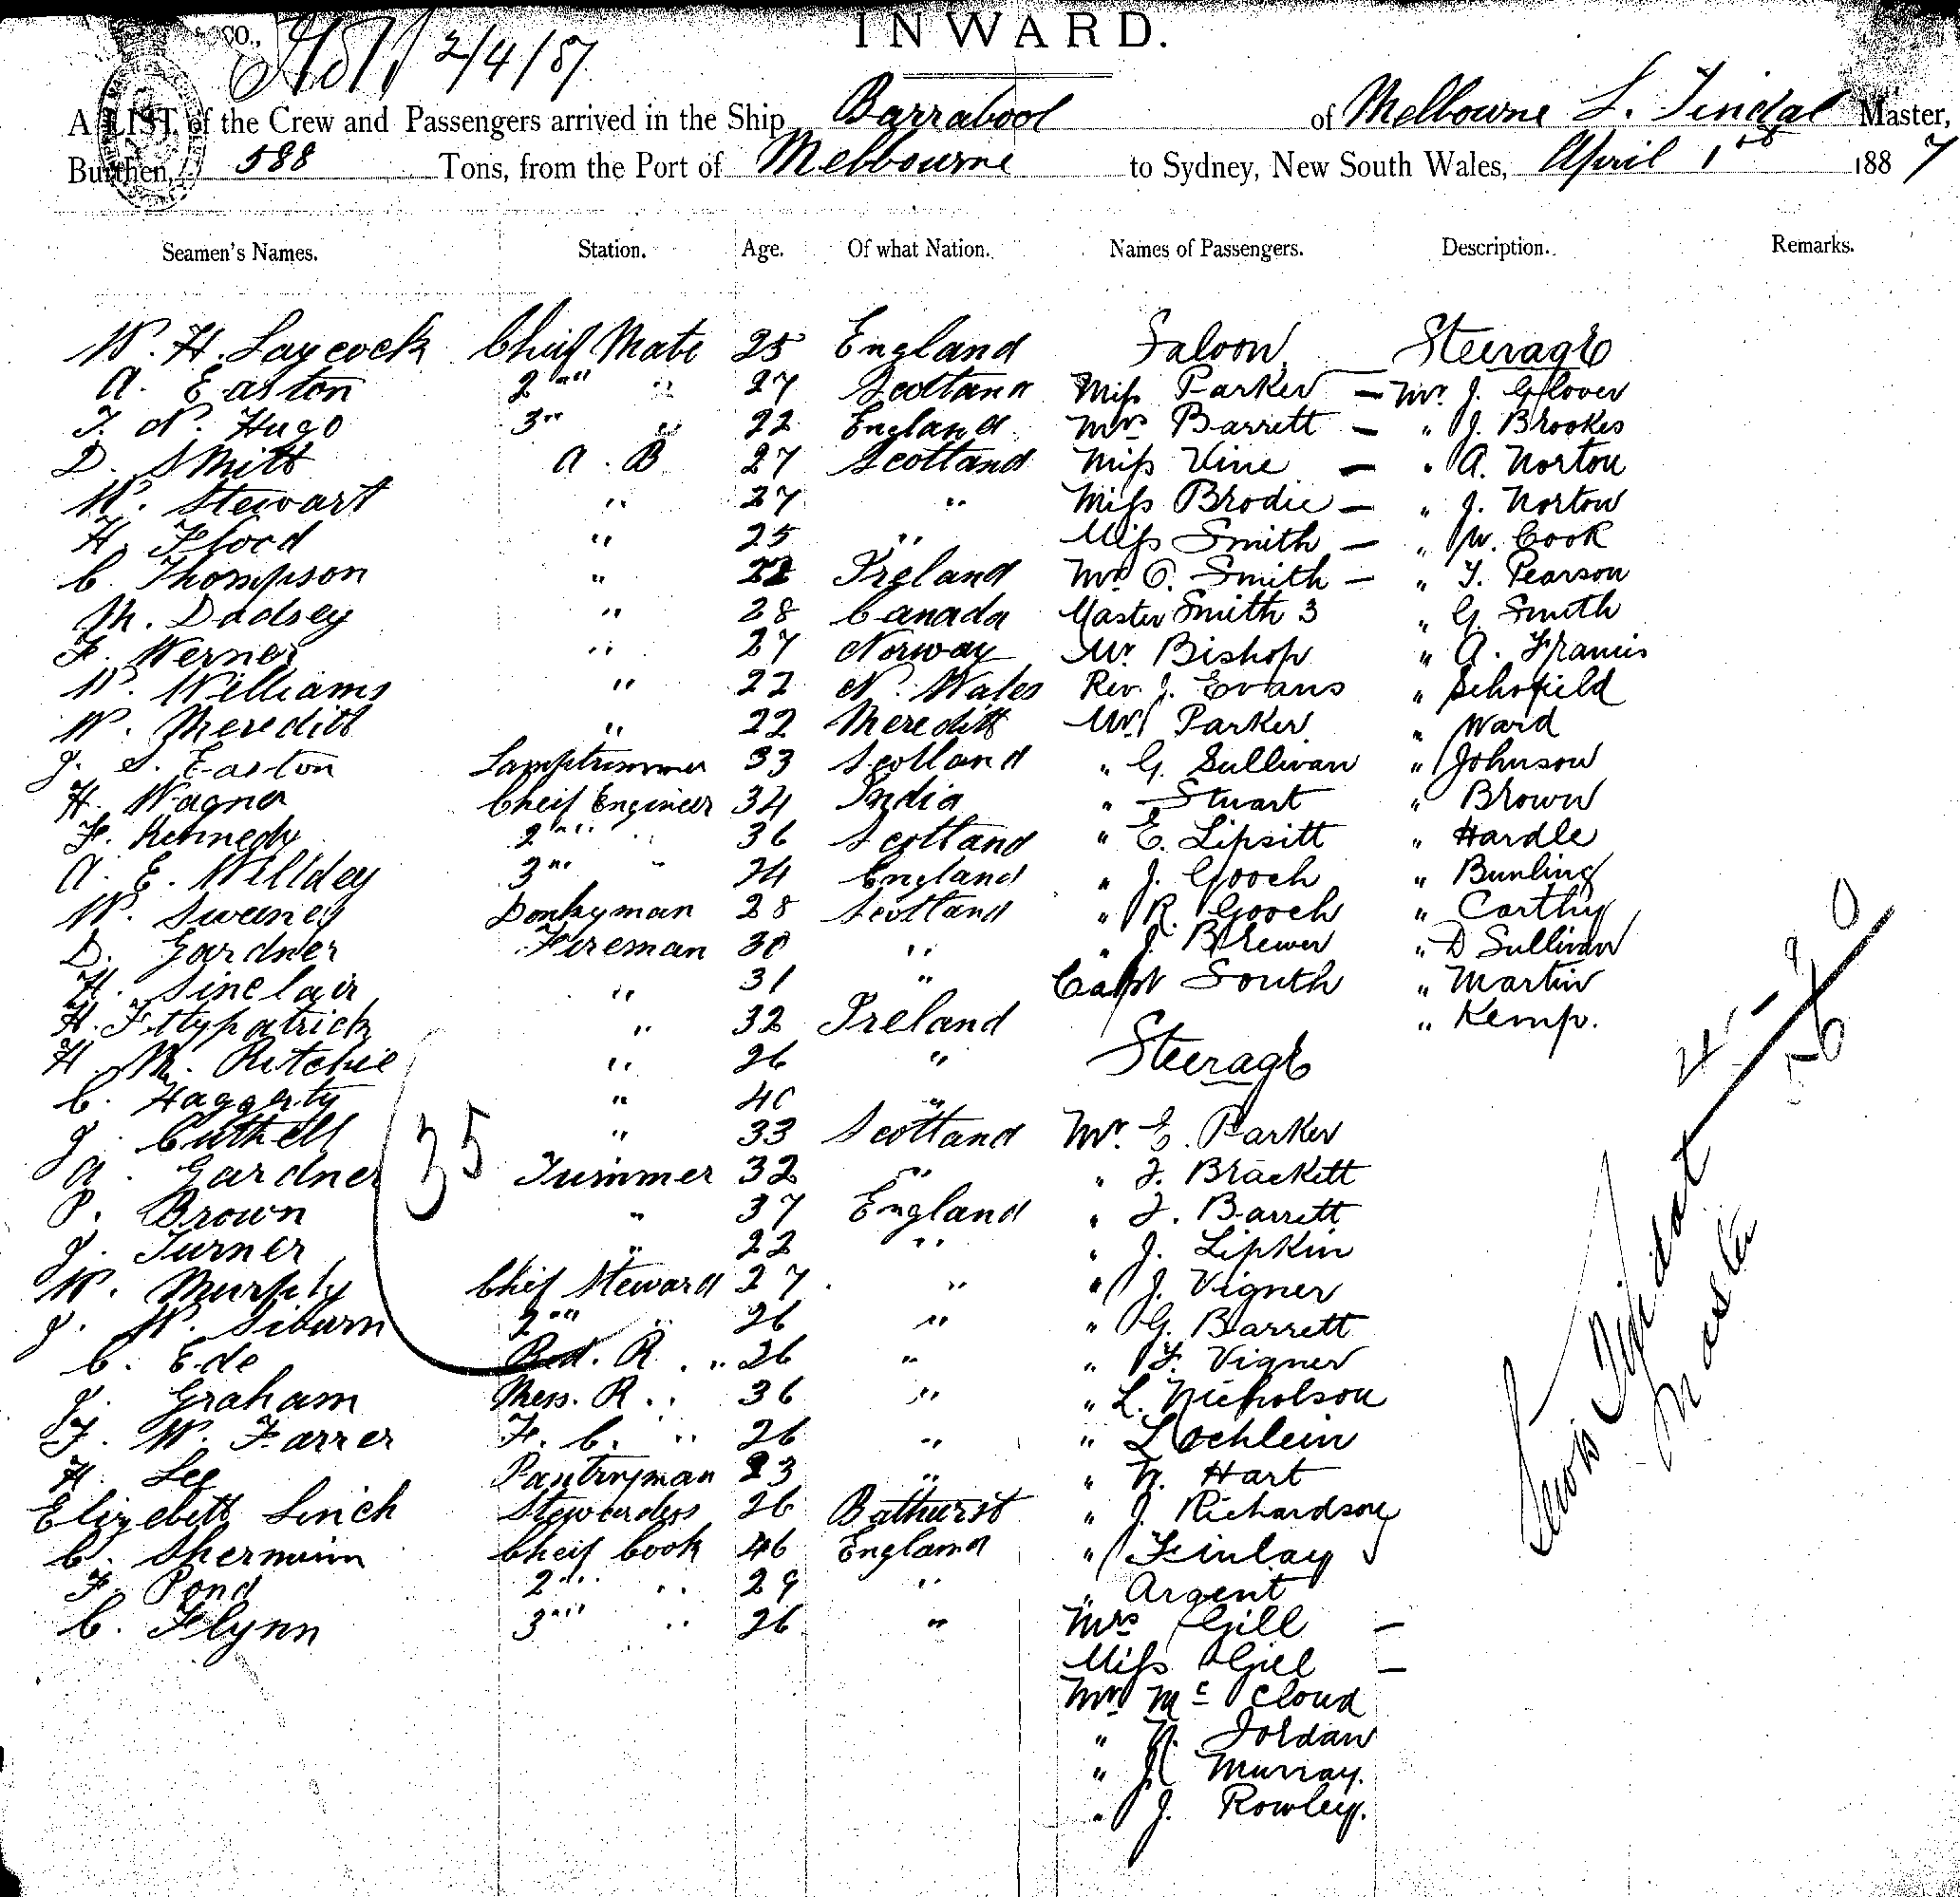 CO.,
2/4/87
INWARD.
A LIST of the Crew and Passengers arrived in the Ship Barrabool of Melbourne L. Tindal Master,
Burthen, 588 Tons, from the Port of Melbourne to Sydney, New South Wales, April 1st 1887
Seamen's Names. Station. Age. Of what Nation. Names of Passengers. Description. Remarks.
W. H. Laycock Chief Mate 25 England Saloon Steerage
A. Easton 2nd " 27 Scotland Miss Parker — Mr. J. Glover
T. N. Hugo 3rd " 22 England Mrs Barrett — " J. Brookes
D. Smith A. B 27 Scotland Miss Vine — " A. Norton
W. Stewart " 27 " Miss Brodie — " J. Norton
H. Flood " 25 " Miss Smith — " W. Cook
C. Thompson " 22 Ireland Mr C. Smith — " T. Pearson
M. Dadsey " 28 Canada Master Smith 3 " G. Smith
F. Werner " 27 Norway Mr. Bishop " A. Francis
W. Williams " 22 N. Wales Rev. J. Evans " Schofield
W. Meredith " 22 Meredith Mr Parker " Ward
J. S. Easton Lamptrimmer 33 Scotland " G. Sullivan " Johnson
H. Wagner Cheif Engineer 34 India " Stuart " Brown
F. Kennedy 2nd " 36 Scotland " E. Lipsitt " Hardle
A. E. Willdey 3rd " 24 England " J. Gooch " Bunling
W. Sweeney Donkyman 28 Scotland " R. Gooch " Carthy
D. Gardner Fireman 30 " " J. Brewer " D Sullivan
H. Sinclair " 31 " Capt South " Martin
H. Fittypatrick " 32 Ireland " Kemp.
H. M. Ritchie " 26 " Steerage
C. Haggerty " 40 "
J. Cuthell " 33 Scotland Mr. E. Parker
A. Gardner 35 Trimmer 32 " " J. Brackett
P. Brown " 37 England " J. Barrett
J. Turner " 22 " " J. Lipkin
W. Murphy Chief Steward 27 " " J. Vigner
J. W. Siburn 2nd " 26 " " G. Barrett
C. Ede Bed. R. " 26 " " F. Vigner
J. Graham Mess. R. " 36 " " L. Nicholson
T. W. Farrer F. C. " 26 " " Lochlein
H. Lee Pantryman 23 " " W. Hart
Elizebeth Linch Stewardess 26 Bathurst " J. Richardson
C. Shermann Cheif Cook 46 England " Finlay
F. Pond 2nd " 29 " " Argent
C. Flynn 3rd " 26 " Mrs Gill —
Miss Gill —
Mr Mc Cloud
" N. Jordan
" J. Murray.
" J. Rowley.
Lewis Tindal
Master